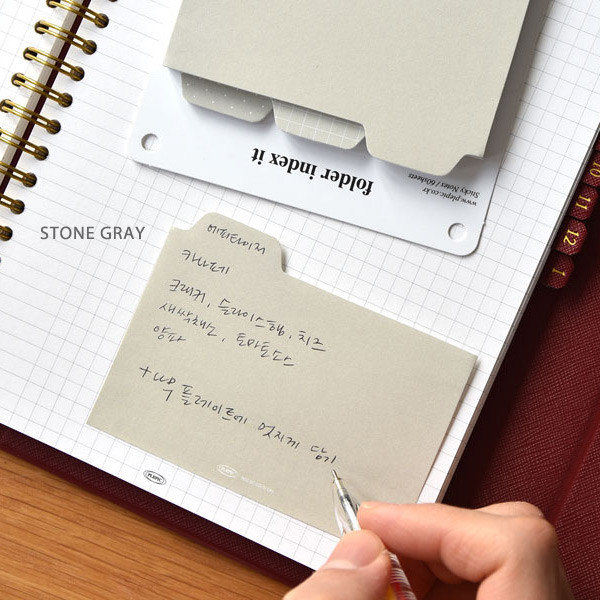 folder index it
www.plepic.co.kr
Sticky Notes / 60sheets
10
11
12
1
STONE GRAY
에피타이저
카나페
크래커, 슬라이스햄, 치즈
새싹채소, 토마토소스
양파
플레이트에 멋지게 담기
PLEPIC
PLEPIC